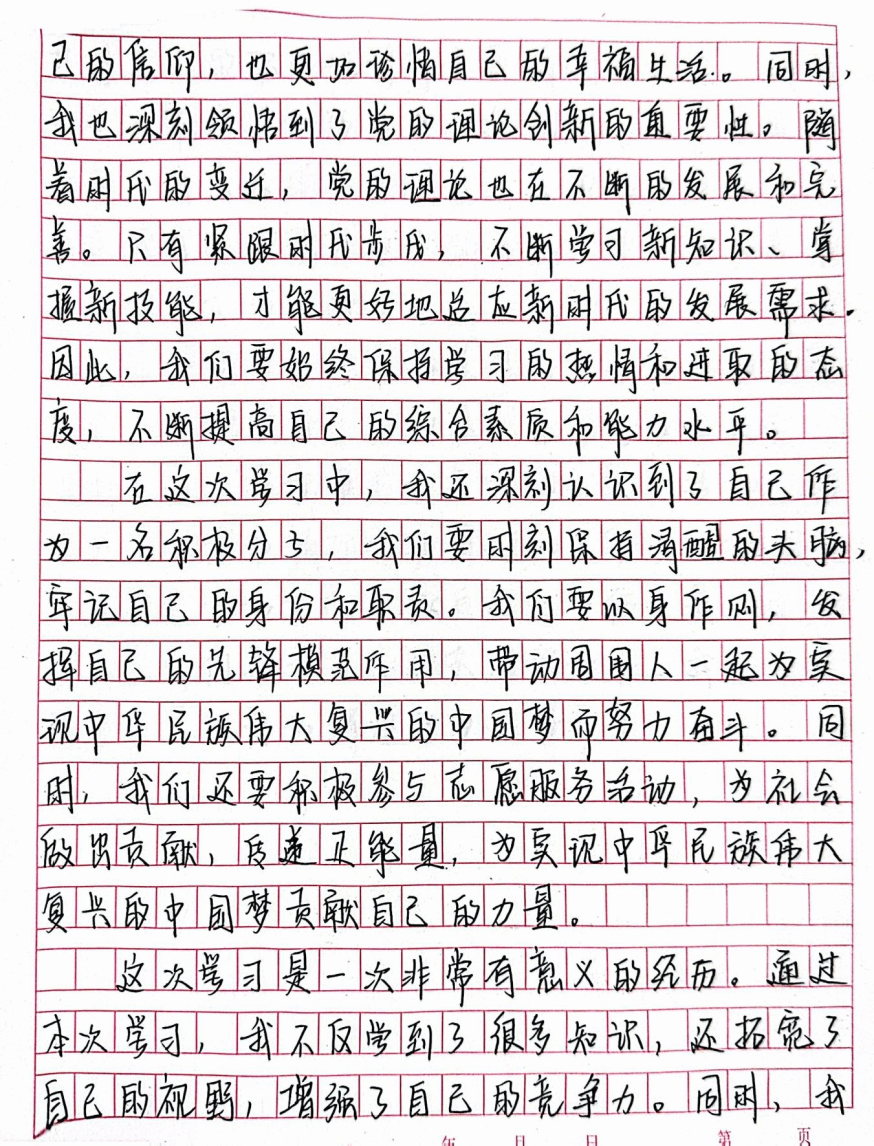 己的信仰，也更加珍惜自己的幸福生活。同时，
我也深刻领悟到了党的理论创新的重要性。随
着时代的变迁，党的理论也在不断的发展和完
善。只有紧跟时代步伐，不断学习新知识、掌
握新技能，才能更好地适应新时代的发展需求.
因此，我们要始终保持学习的热情和进取的态
度，不断提高自己的综合素质和能力水平。
在这次学习中，我还深刻认识到了自己作
为一名积极分子，我们要时刻保持清醒的头脑，
牢记自己的身份和职责。我们要以身作则，发
挥自己的先锋模范作用，带动周围人一起为实
现中华民族伟大复兴的中国梦而努力奋斗。同
时，我们还要积极参与志愿服务活动，为社会
做出贡献，传递正能量，为实现中华民族伟大
复兴的中国梦贡献自己的力量。
这次学习是一次非常有意义的经历。通过
本次学习，我不仅学到了很多知识，还拓宽了
自己的视野，增强了自己的竞争力。同时，我
年 月 日 第 页